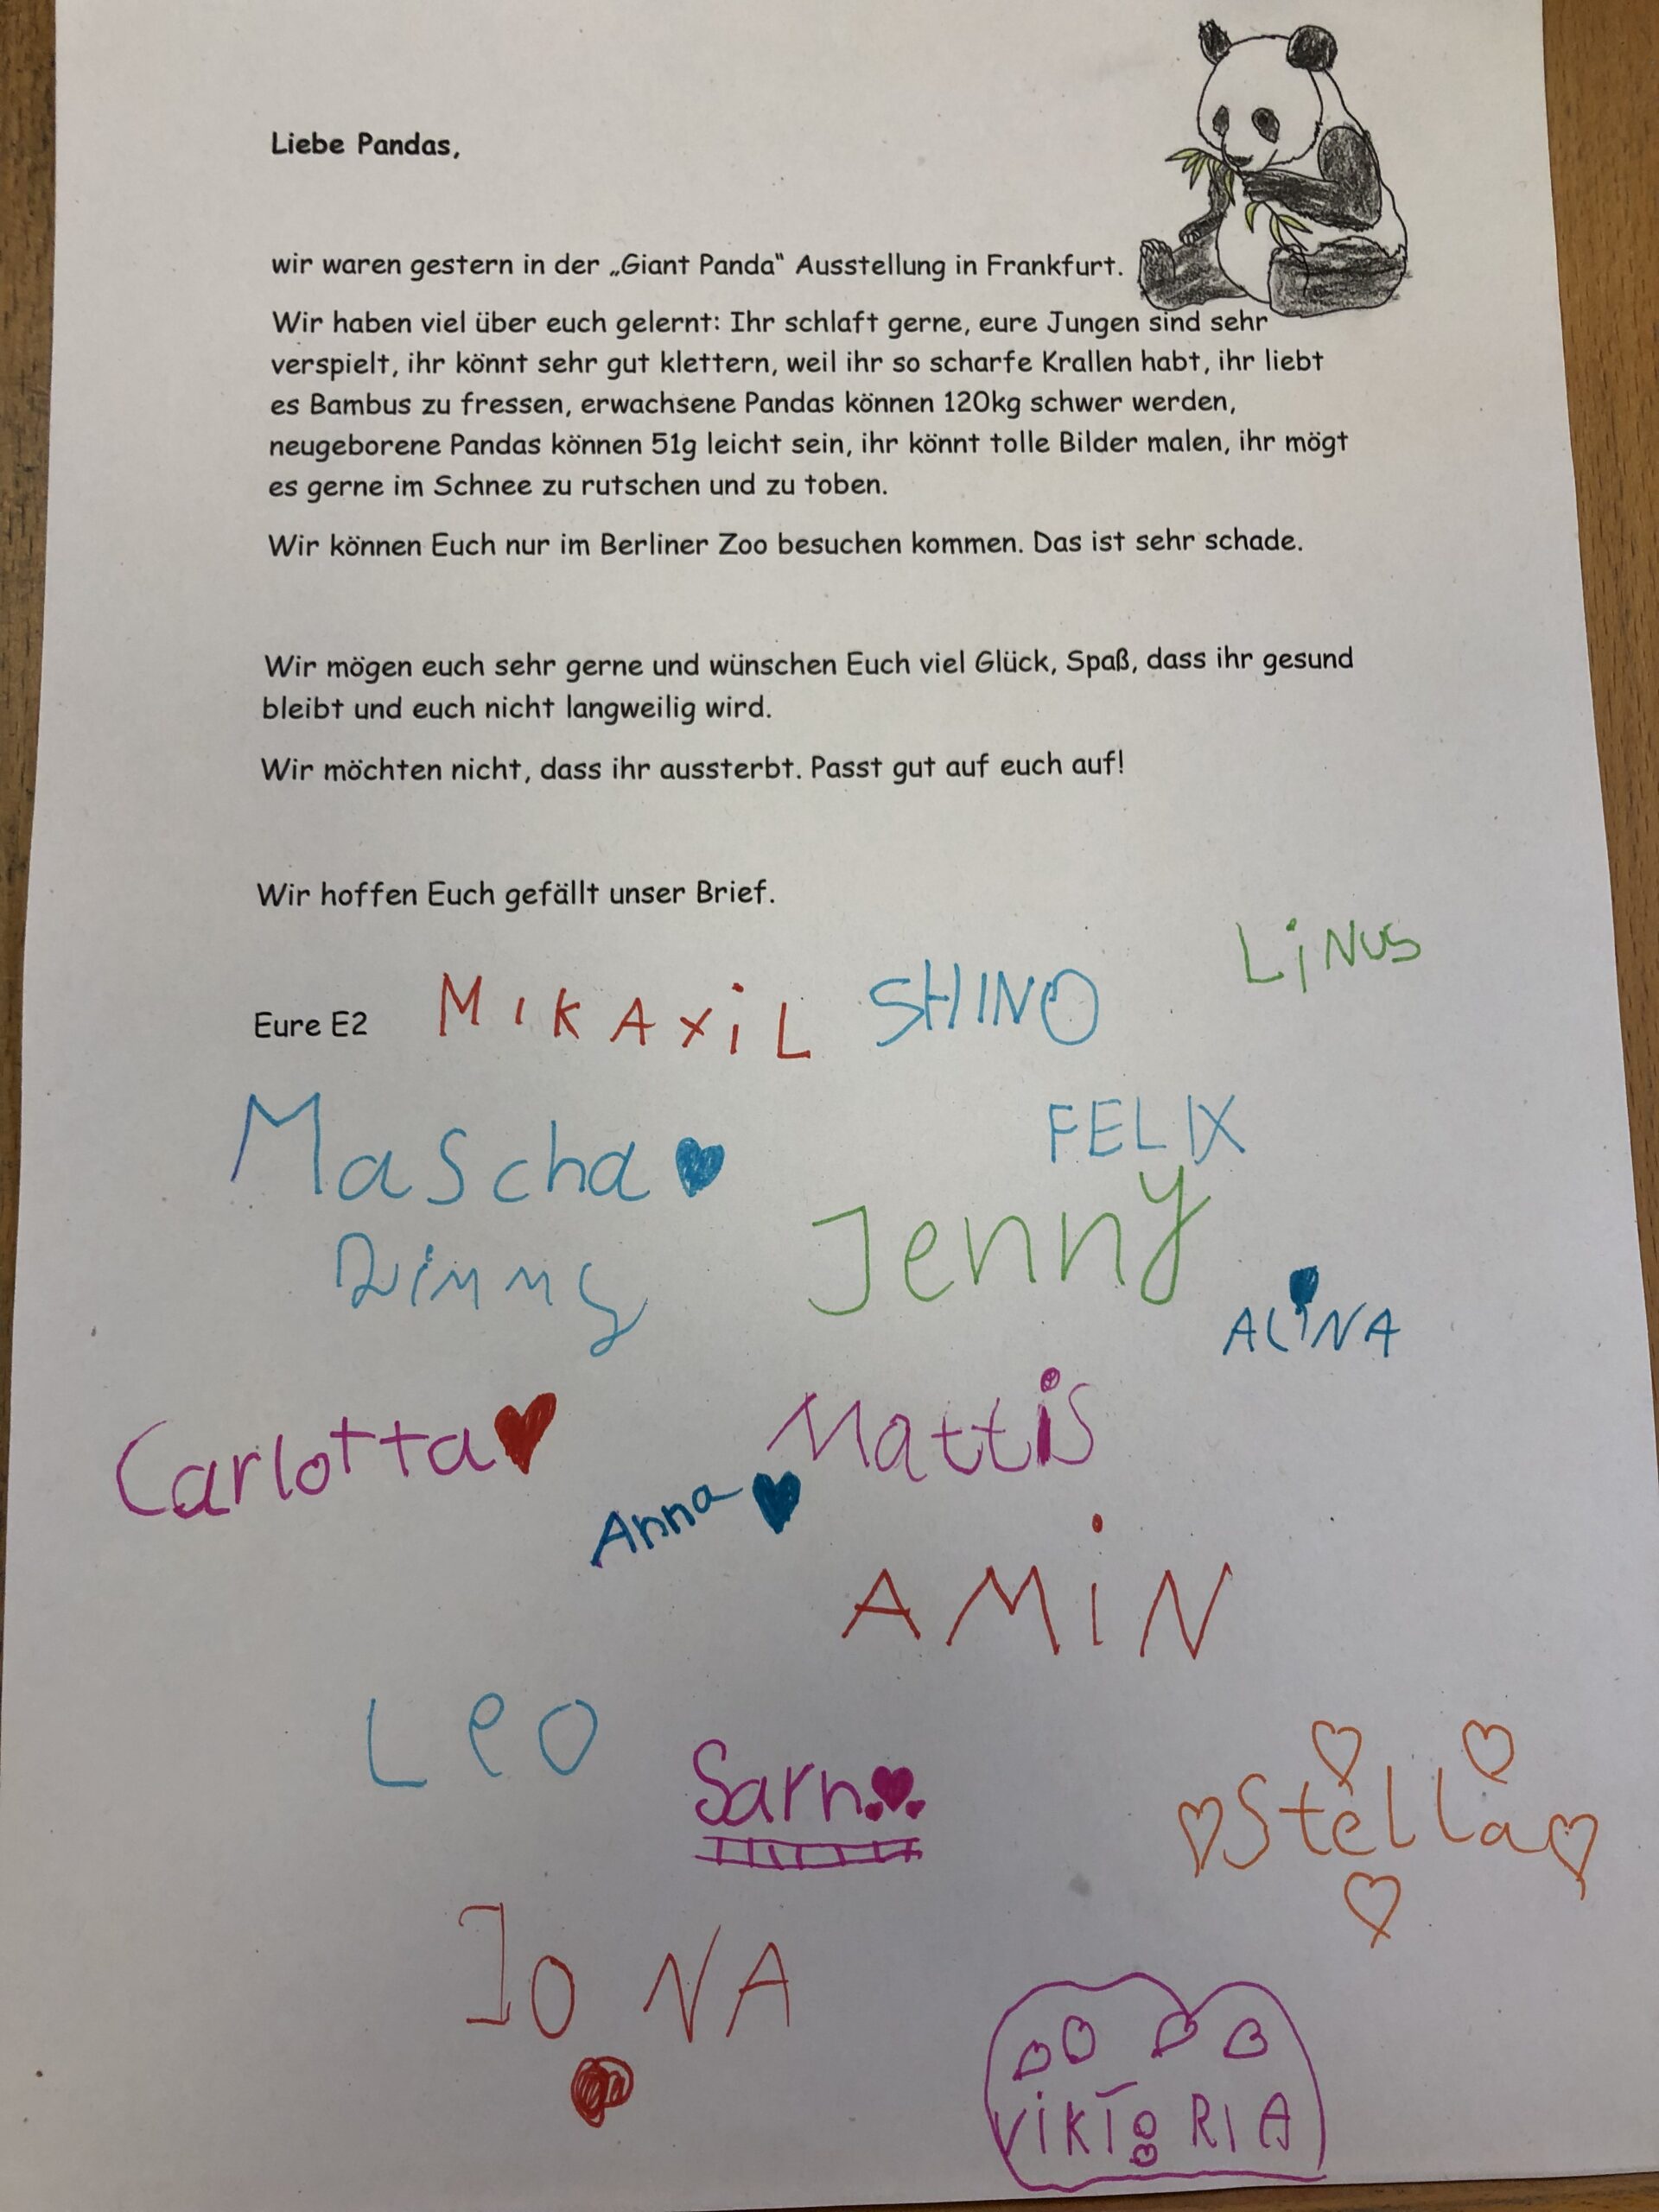 Liebe Pandas,
wir waren gestern in der „Giant Panda“ Ausstellung in Frankfurt.
Wir haben viel über euch gelernt: Ihr schlaft gerne, eure Jungen sind sehr
verspielt, ihr könnt sehr gut klettern, weil ihr so scharfe Krallen habt, ihr liebt
es Bambus zu fressen, erwachsene Pandas können 120kg schwer werden,
neugeborene Pandas können 51g leicht sein, ihr könnt tolle Bilder malen, ihr mögt
es gerne im Schnee zu rutschen und zu toben.
Wir können Euch nur im Berliner Zoo besuchen kommen. Das ist sehr schade.
Wir mögen euch sehr gerne und wünschen Euch viel Glück, Spaß, dass ihr gesund
bleibt und euch nicht langweilig wird.
Wir möchten nicht, dass ihr aussterbt. Passt gut auf euch auf!
Wir hoffen Euch gefällt unser Brief.
LiNUS
Eure E2 MIKAXiL SHINO
Mascha FELIX
Jenny
ALiNA
Carlotta Mattis
Anna
AMiN
Leo
Stella
JONA
ViKToRIA